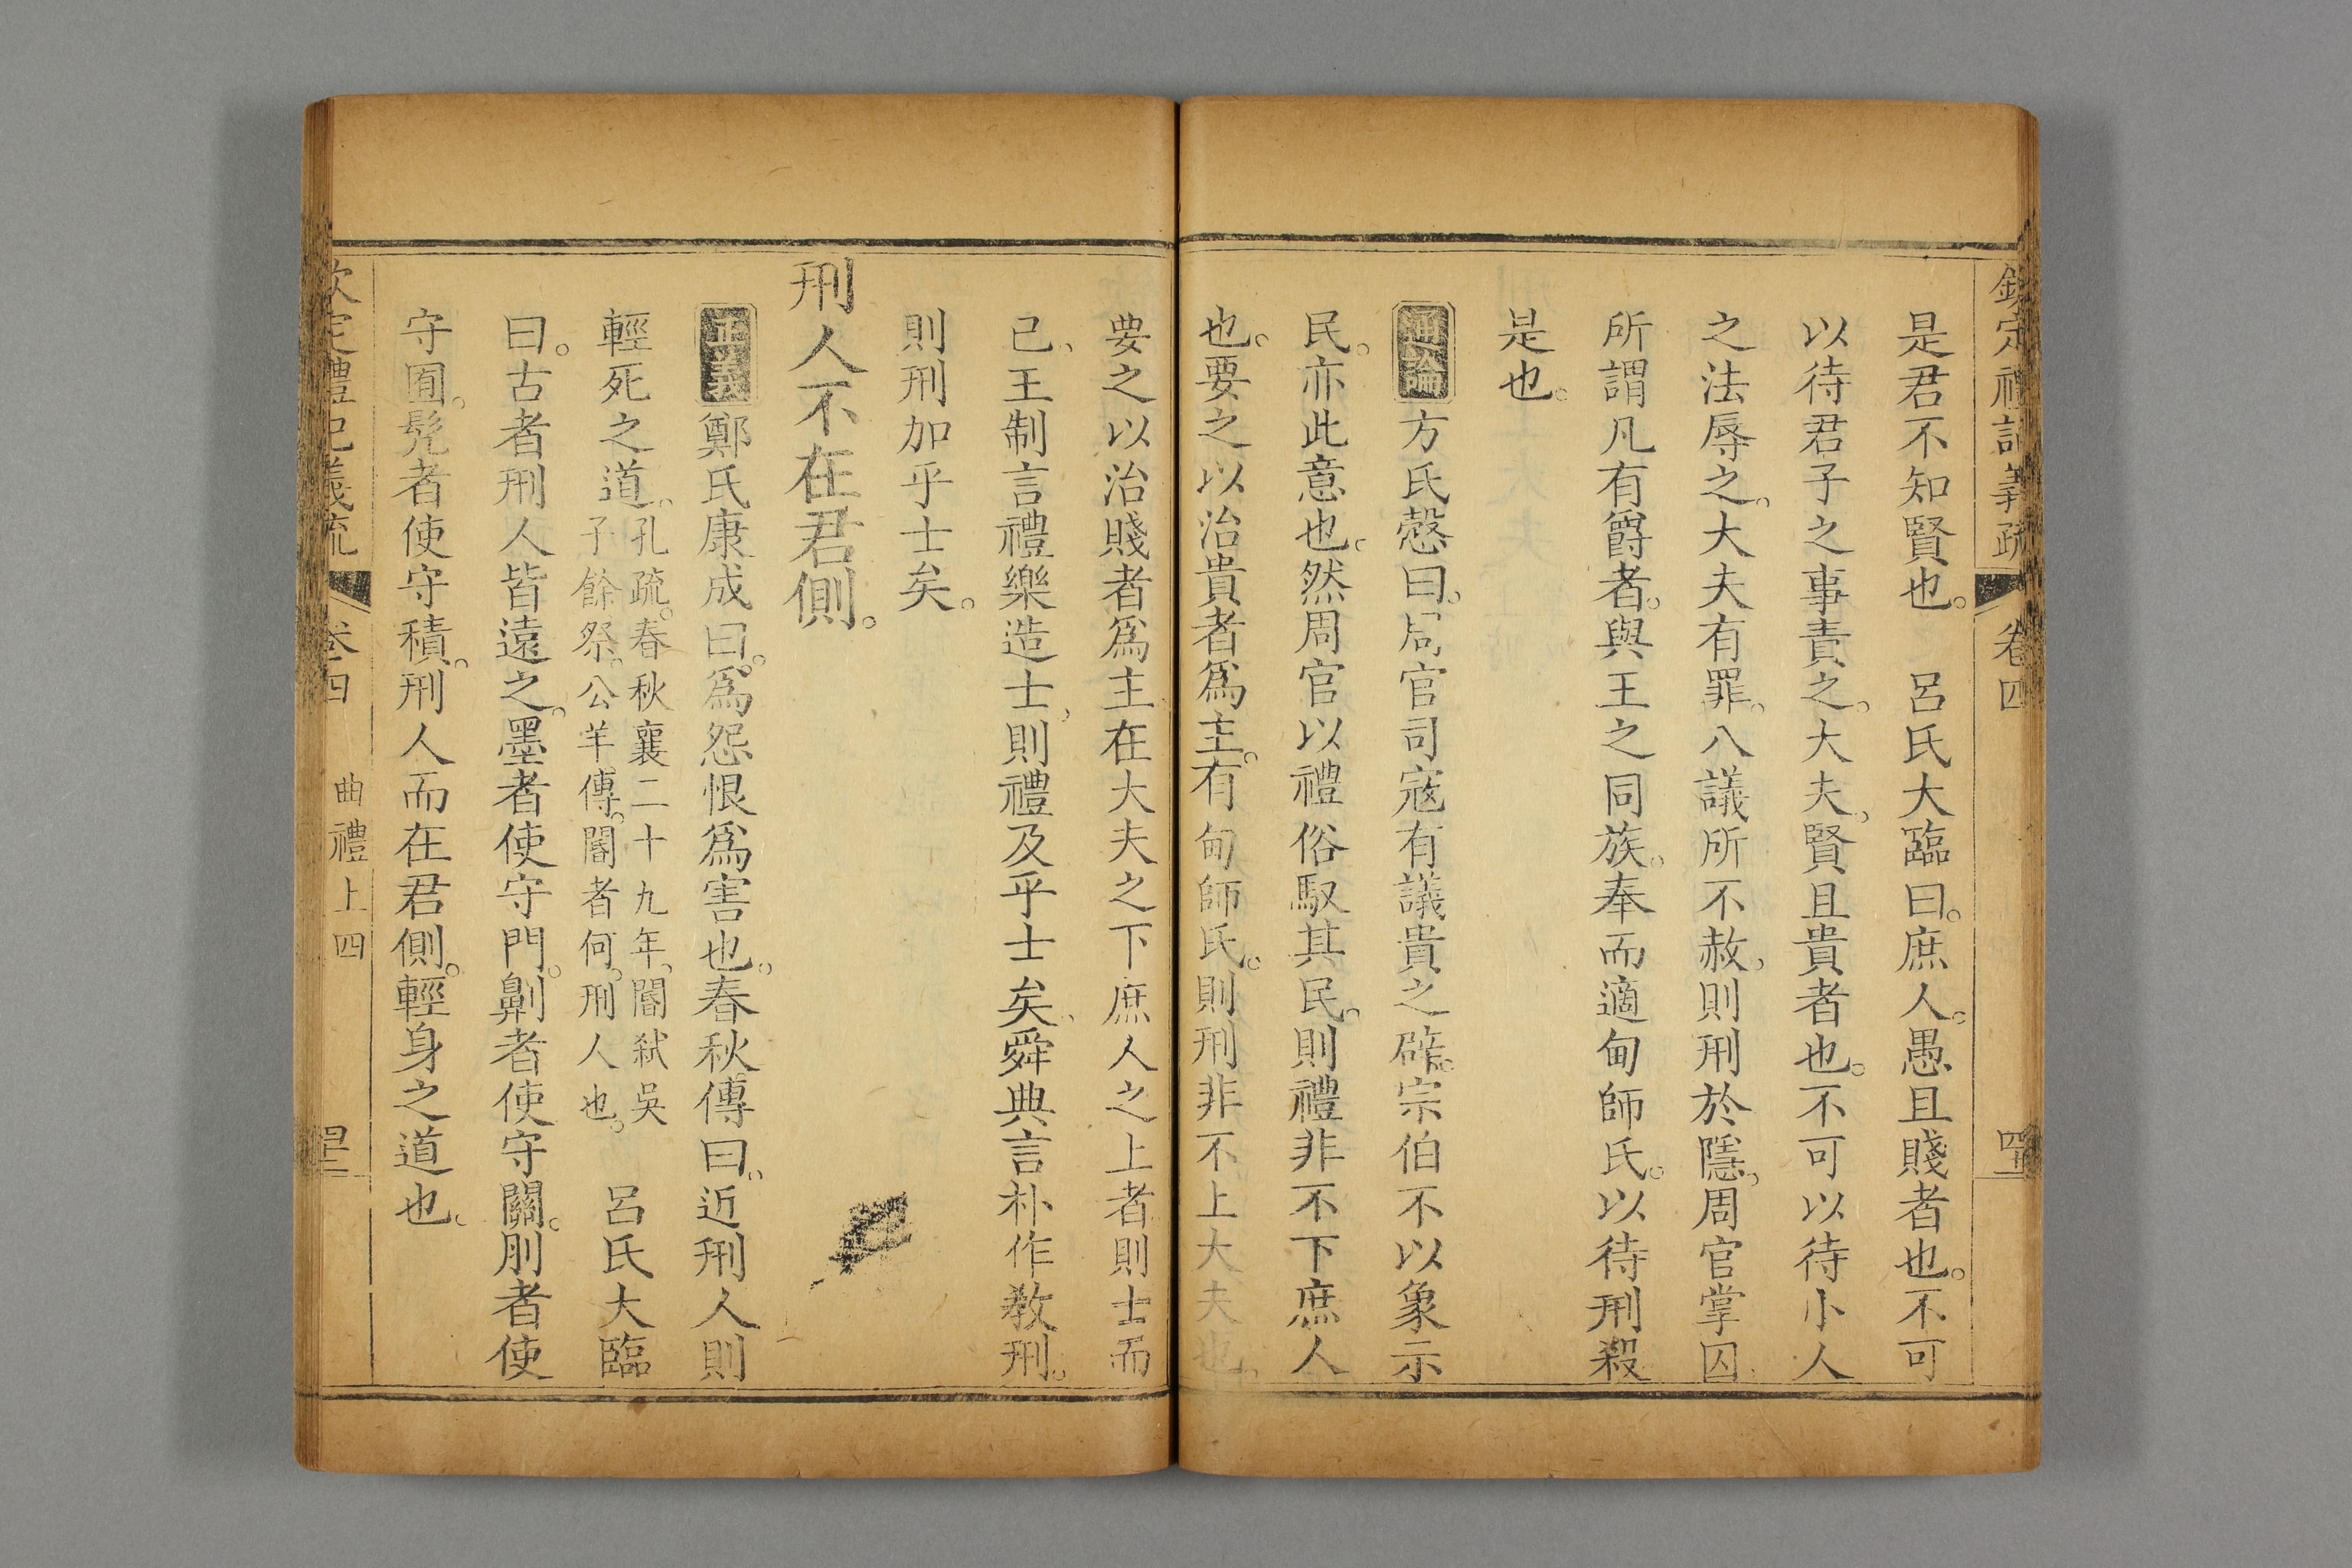 欽定禮記義疏 卷四
是君不知賢也。 呂氏大臨曰。庶人。愚且賤者也。不可
以待君子之事責之。大夫。賢且貴者也。不可以待小人
之法辱之。大夫有罪。八議所不赦。則刑於隱。周官掌囚
所謂凡有爵者。與王之同族。奉而適甸師氏。以待刑殺
是也。
通論 方氏慤曰。周官司寇有議貴之辟。宗伯不以象示
民。亦此意也。然周官以禮俗馭其民。則禮非不下庶人
也。要之以治貴者爲主。有甸師氏。則刑非不上大夫也。
要之以治賤者爲主在大夫之下庶人之上者則士而
已、王制言禮樂造士、則禮及乎士矣、舜典言朴作敎刑。
則刑加乎士矣。
刑人不在君側。
正義 鄭氏康成曰。爲怨恨爲害也。春秋傳曰、近刑人則
輕死之道。孔疏。春秋襄二十九年。閽弒吳
子餘祭。公羊傳。閽者何。刑人也。 呂氏大臨
曰。古者刑人皆遠之。墨者使守門。劓者使守關。刖者使
守囿。髡者使守積。刑人而在君側。輕身之道也。
欽定禮記義疏 卷四 曲禮上四